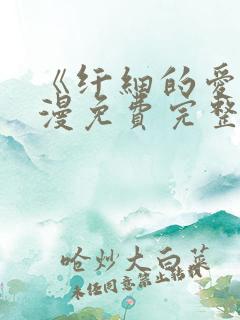 《纤細的愛
漫免費完整
呛炒大白菜
未经同意禁止转载